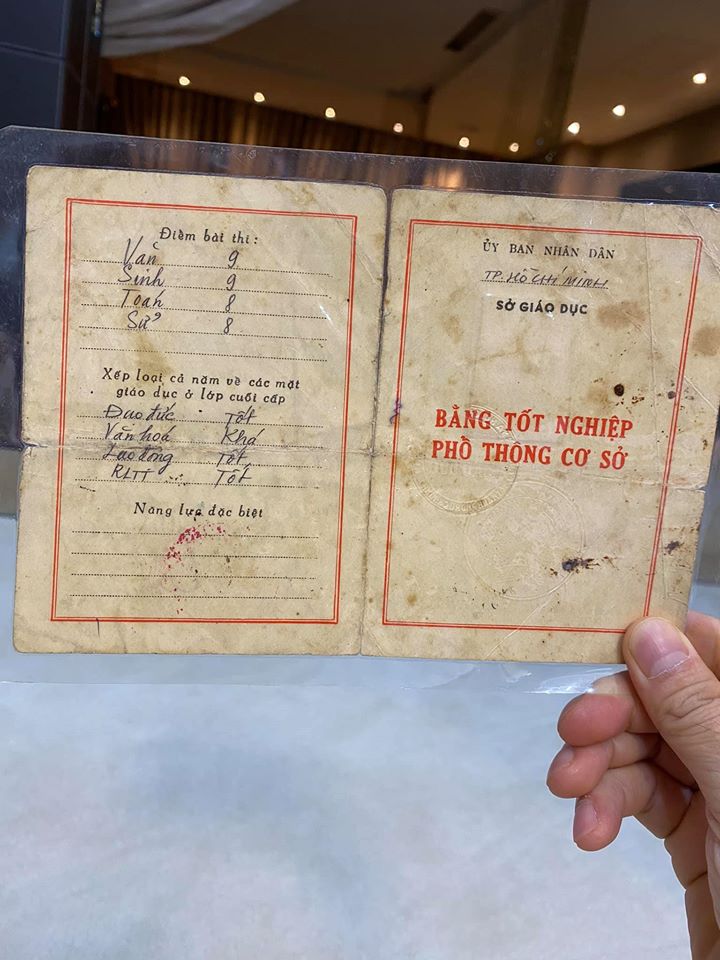 Điểm bài thi:
Văn 9
Sinh 9
Toán 8
Sử 8
Xếp loại cả năm về các mặt
giáo dục ở lớp cuối cấp
Đạo đức Tốt
Văn hoá Khá
Lao động Tốt
RLTT Tốt
Năng lực đặc biệt
ỦY BAN NHÂN DÂN
TP. HỒ CHÍ MINH
SỞ GIÁO DỤC
BẰNG TỐT NGHIỆP
PHỔ THÔNG CƠ SỞ